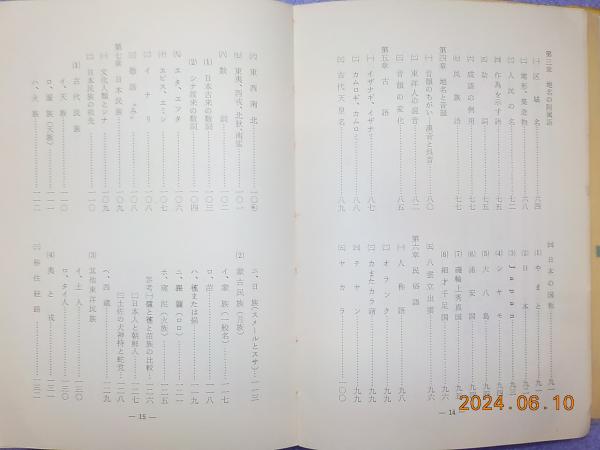 第三章 地名の附属語
㈠ 区域名……………六四
㈡ 地形、築造物………六八
㈢ 人民の名……………七二
㈣ 作為を示す語………七六
㈤ 助詞
㈥ 成語の例用
㈦ 民族語
第四章 地名と音韻
㈠ 音韻のちがい―漢音と呉音…八二
㈡ 東洋人の混音…………八五
㈢ 音韻の変化……………八五
第五章 古語
㈠ イザナギ、イザナミ……八七
㈡ カムロギ、カムロミ……八七
㈢ 古代天皇名……………八九
㈣ 日本の国称……………九一
(1) やまと……………九一
(2) 日本
(3) Japan
(4) シヤモ
(5) 大八島
(6) 浦安国
(7) 磯輪上秀真国
(8) 細才千足国……………九六
㈤ 八雲立出雲……………九六
第六章 民俗語
㈠ 人称語……………九八
㈡ オランダ……………九八
㈢ カまたカラ語……………九八
㈣ テヤン……………九九
㈤ ヤカラ……………一〇〇
— 14 —
㈥ 東西南北……………一〇〇
㈦ 東夷、西戎、北狄、南蛮……一〇一
㈧ 数詞……………一〇二
(1) 日本古来の数詞……一〇三
(2) シナ渡来の数詞……一〇四
㈨ エタ、エツタ……………一〇六
㈩ イナリ……………一〇七
エビス、エミシ……………一〇八
敬語“み”……………一〇八
第七章 日本民族……………一〇九
㈠ 文化人類とシナ……………一〇九
㈡ 日本民族の祖先……………一一〇
(1) 古代民族……………一一〇
イ、天族……………一一〇
ロ、羅族（天族）……………一一一
ハ、火族……………一一二
ニ、日族（スメールとスサ）…一一三
(2) 蒙古民族（月族）
イ、蒙族（一般名）……………一一七
ロ、苗……………一一八
ハ、獲または猫……………一一九
ニ、羅羅（ロロ）
ホ、窩泥（火族）……………一二五
参考㈠猺と獲と苗族の比較…一二六
㈡日本人と朝鮮人……………一二七
㈢土佐の犬神持と蛇蠱…一二八
ヘ、西蔵……………一二九
(3) 其他東洋民族
イ、土人……………一三〇
ロ、タイ人……………一三〇
(4) 夷と戎……………一三一
㈢ 移住経路……………一三二
— 15 —
2024.06.10